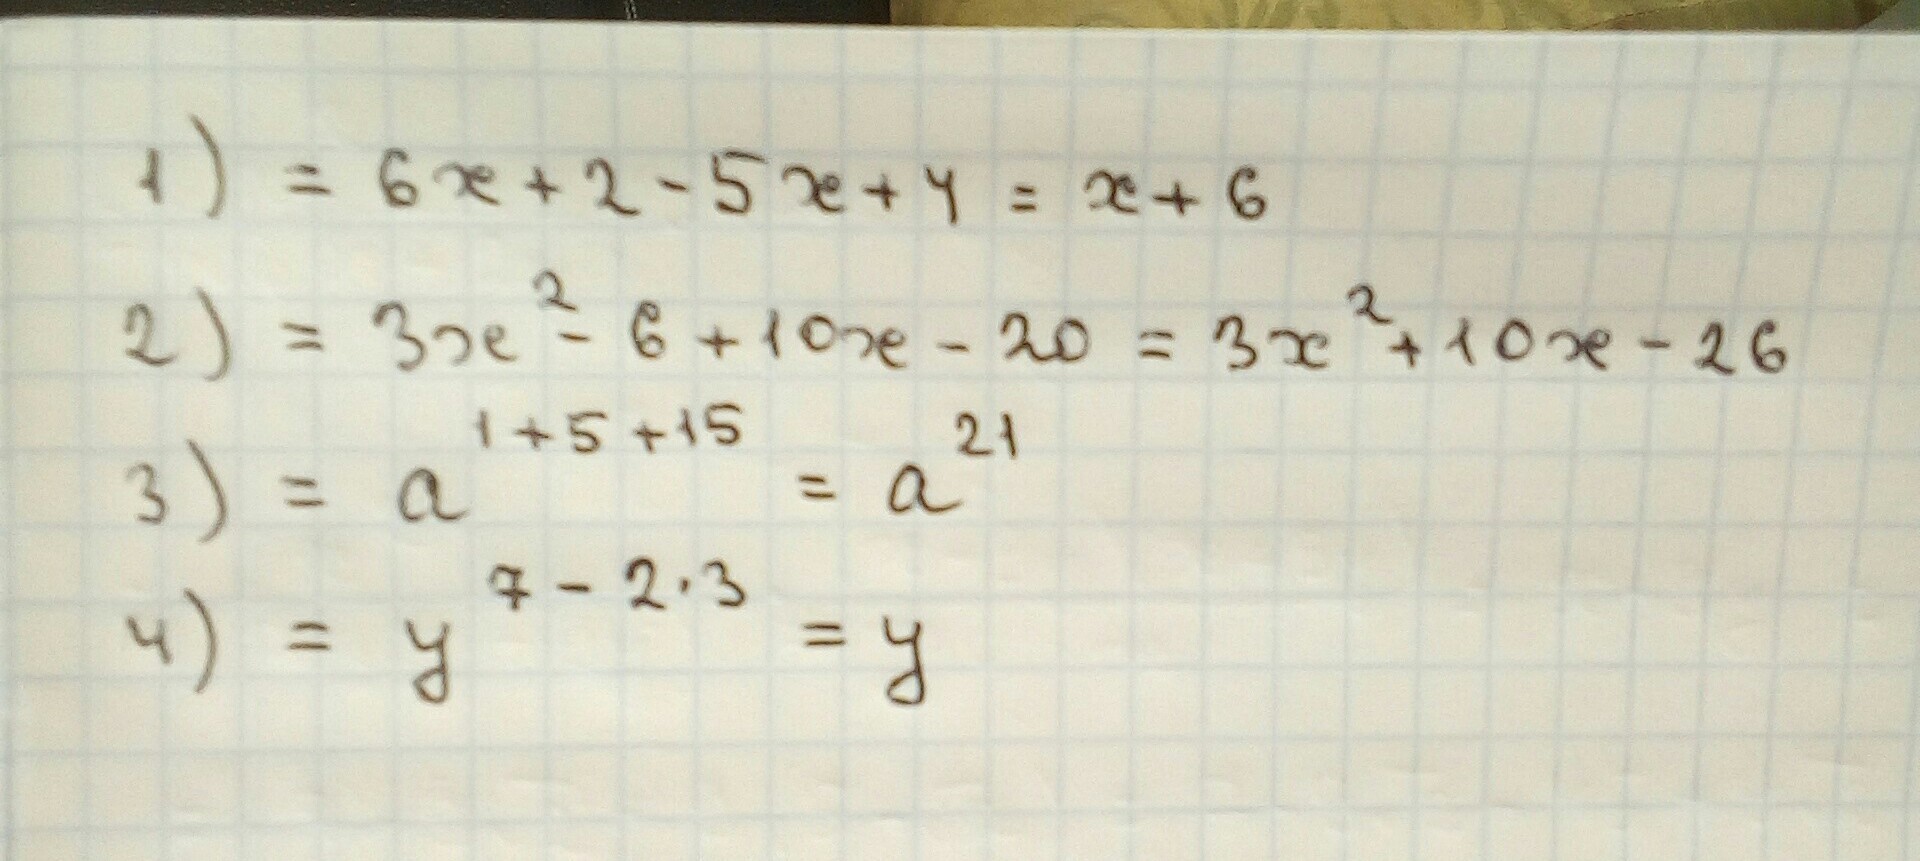 1) = 6x + 2 - 5x + 4 = x + 6
2) = 3x² - 6 + 10x - 20 = 3x² + 10x - 26
3) = a^{1+5+15} = a^{21}
4) = y^{7-2·3} = y